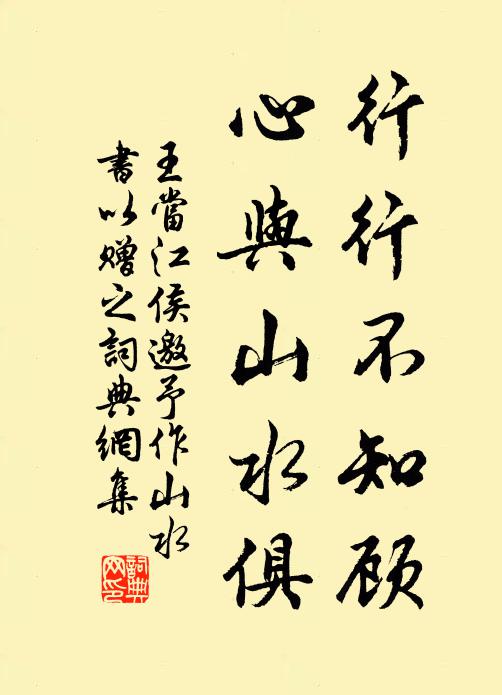 行行不知顾
心與山水俱
王當江侯邀予作山水
書以贈之詞典網集
詞典
网印